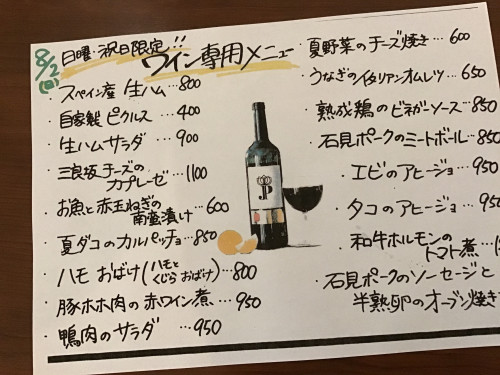 8/2
(日)
日曜・祝日限定!!
ワイン専用メニュー
・スペイン産 生ハム…800
・自家製 ピクルス …400
・生ハムサラダ …900
・三良坂チーズの
カプレーゼ …1100
・お魚と赤玉ねぎの
南蛮漬け …600
・夏ダコのカルパッチョ…850
・ハモ おばけ(ハモと
くじら おばけ)…800
・豚ホホ肉の赤ワイン煮…950
・鴨肉のサラダ …950
JP
・夏野菜のチーズ焼き…600
・うなぎのイタリアンオムレツ…650
・熟成鶏のビネガーソース…850
・石見ポークのミートボール…850
・エビのアヒージョ…950
・タコのアヒージョ…950
・和牛ホルモンの
トマト煮…
・石見ポークのソーセージと
半熟卵のオーブン焼き